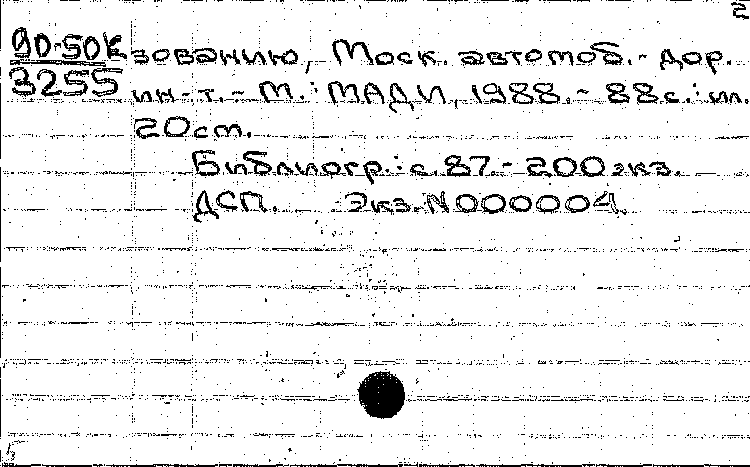 2
90-50К зованию, Моск. автомоб.- дор.
3255 ин-т. - М.: МАДИ, 1988. - 88с.: ил.
20см.
Библиогр.: с.87. - 200экз.
ДСП. Экз. N000004.